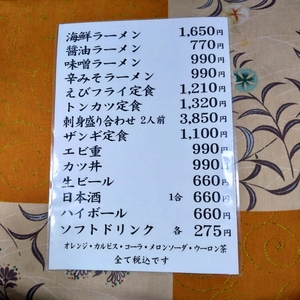 海鮮ラーメン 1,650円
醤油ラーメン 770円
味噌ラーメン 990円
辛みそラーメン 990円
えびフライ定食 1,210円
トンカツ定食 1,320円
刺身盛り合わせ 2人前 3,850円
ザンギ定食 1,100円
エビ重 990円
カツ丼 990円
生ビール 660円
日本酒 1合 660円
ハイボール 660円
ソフトドリンク 各 275円
オレンジ・カルピス・コーラ・メロンソーダ・ウーロン茶
全て税込です